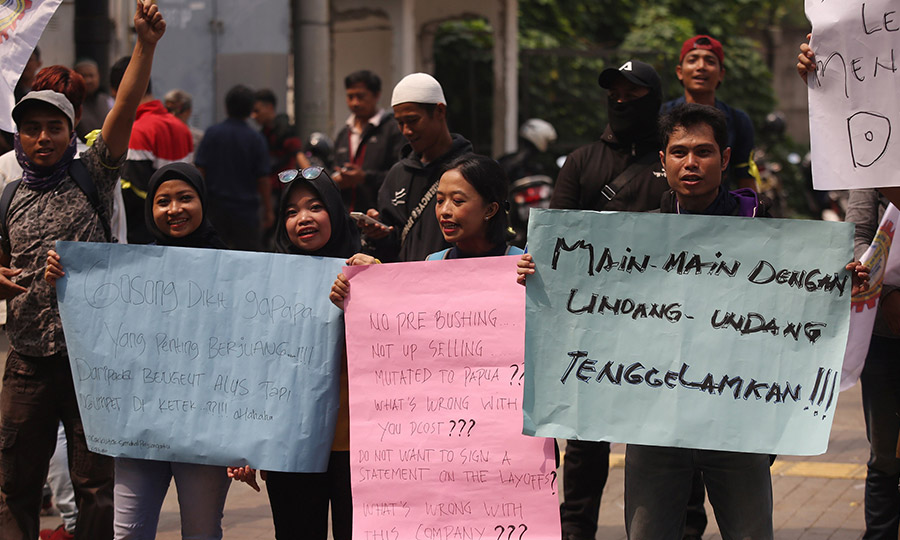 Gosong Dikit gapapa
Yang penting BERJUANG...!!!!
Daripada BENGEUT ALUS TAPI
NGUMPET DI KETEK..???!!! aHahaha
NO PRE BUSHING....
NOT UP SELLING..
MUTATED TO PAPUA ??
WHAT'S WRONG WITH
YOU DCOST ???
DO NOT WANT TO SIGN A
STATEMENT ON THE LAYOFFS?
WHAT'S WRONG WITH
THIS COMPANY ???
MAIN-MAIN DENGAN
UNDANG-UNDANG
TENGGELAMKAN!!!
LE
MEN
D
A